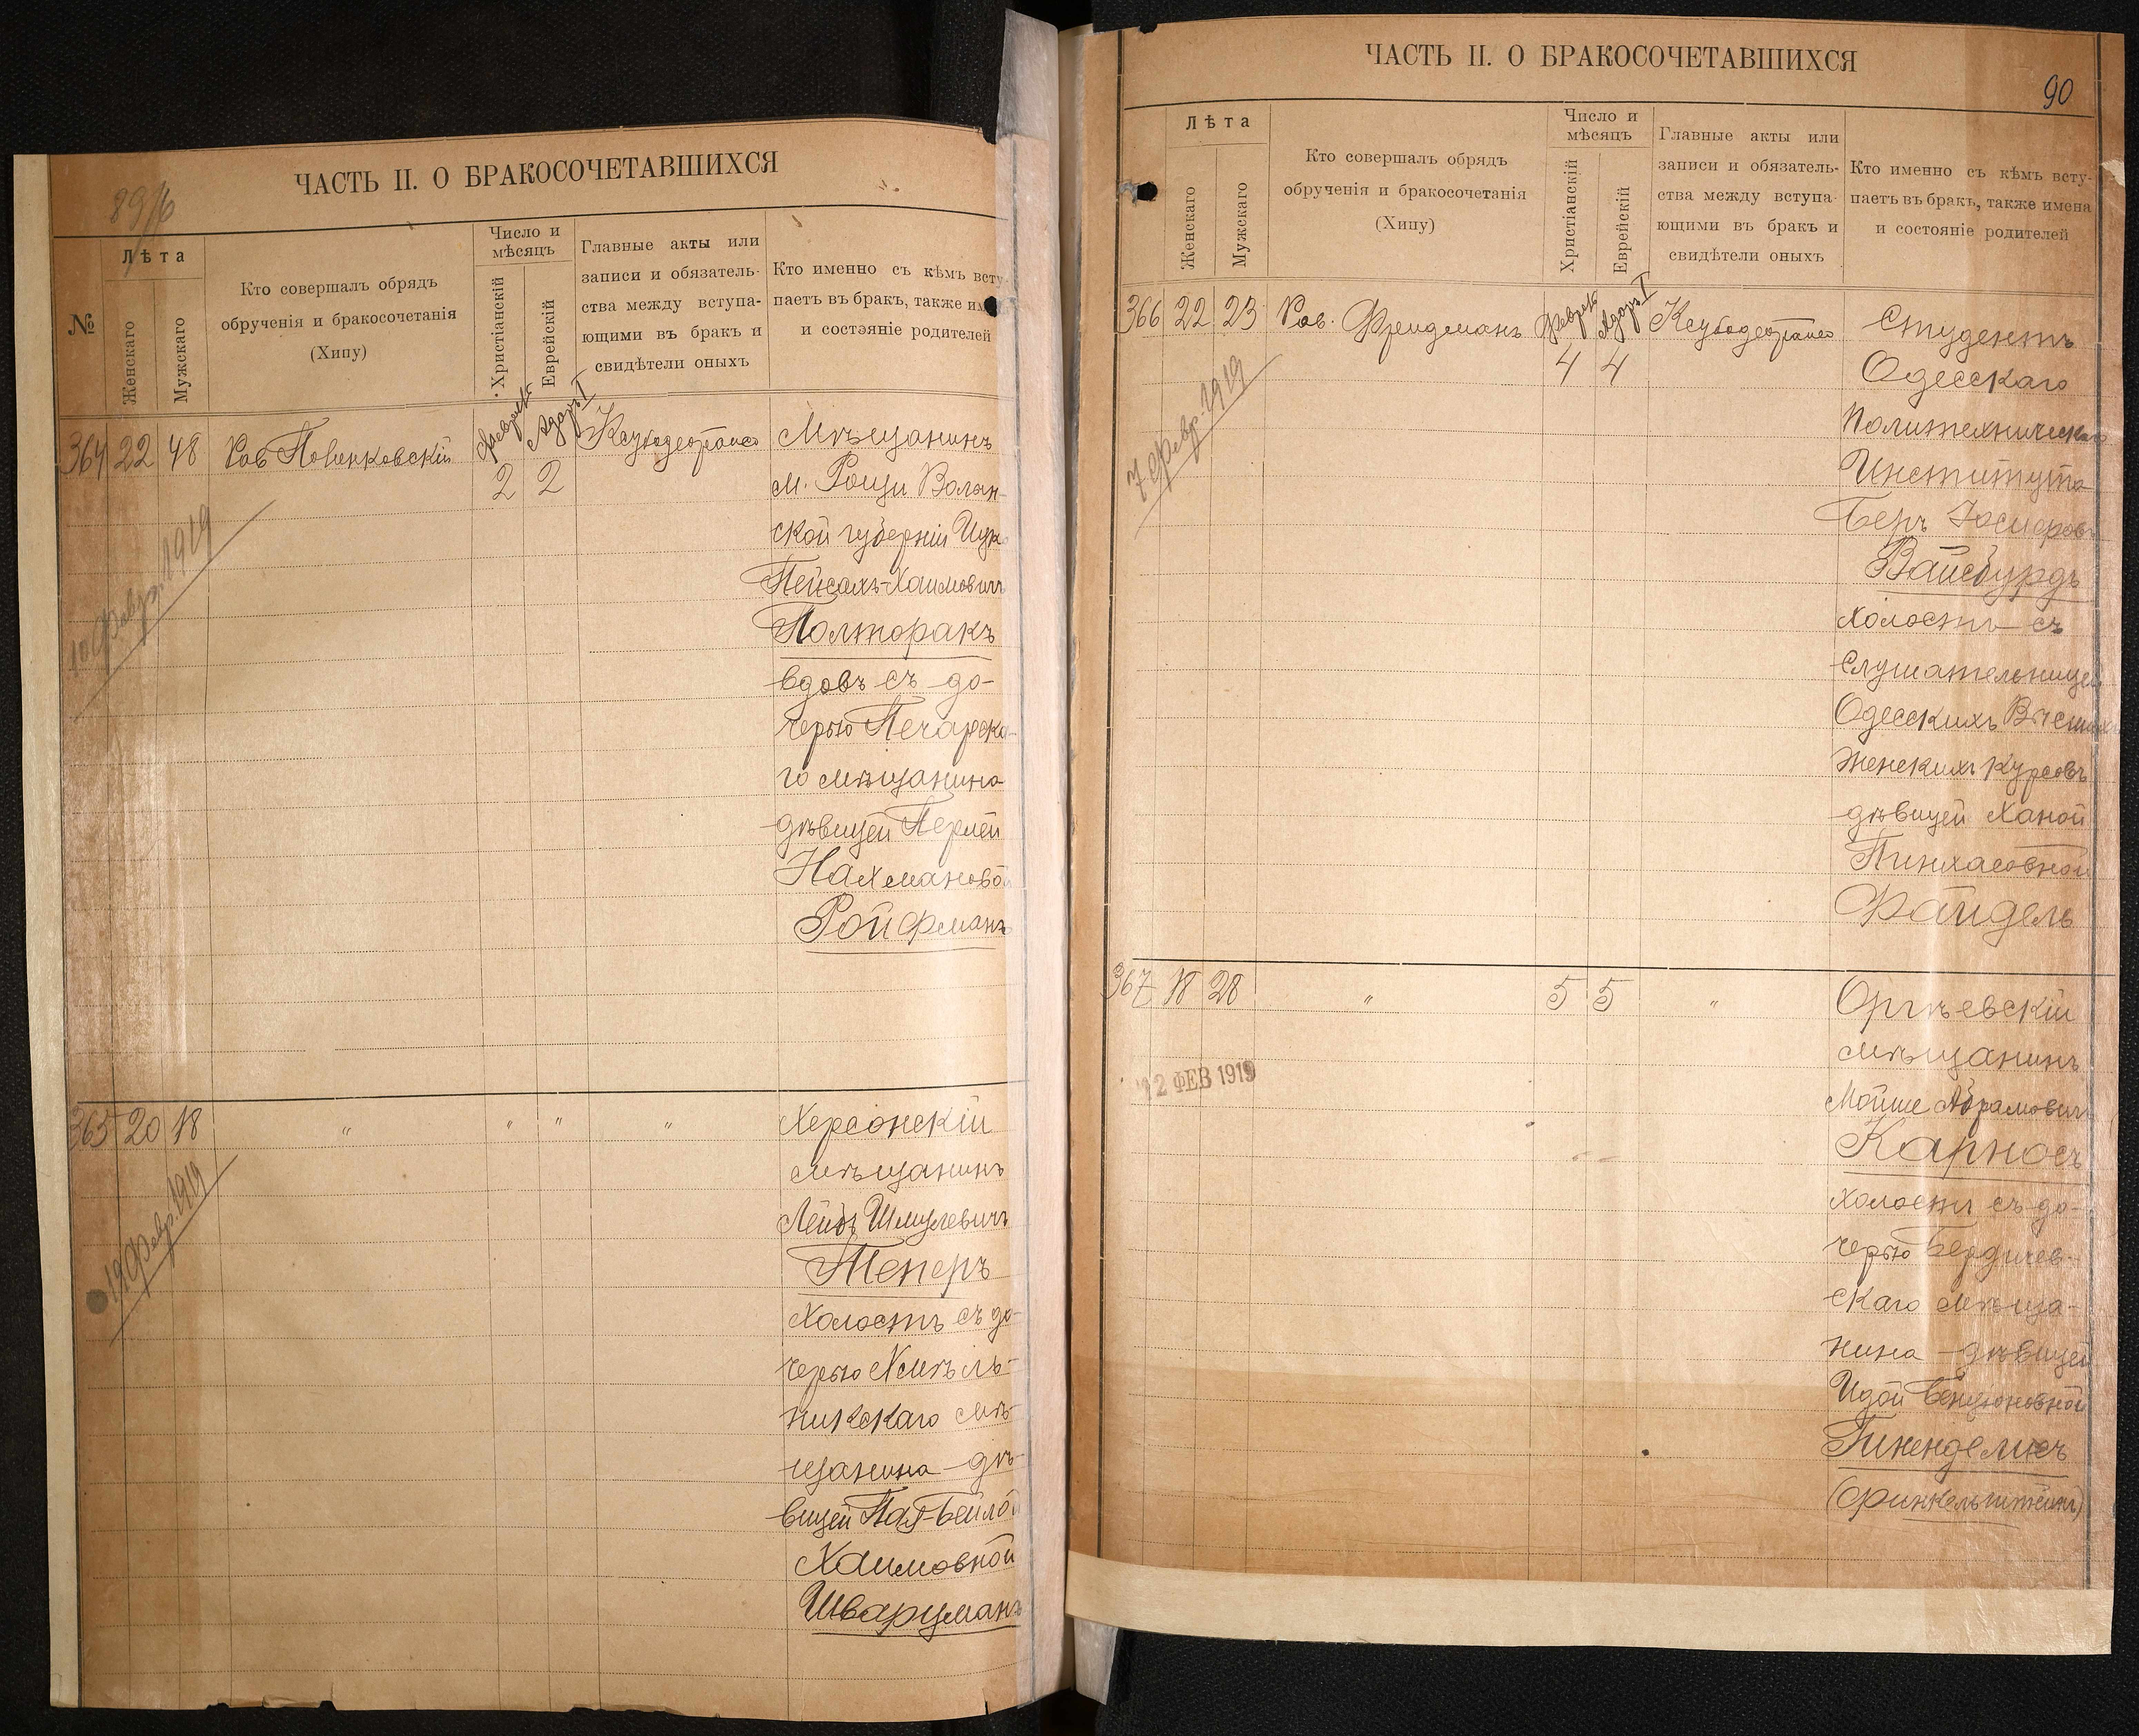 ЧАСТЬ II. О БРАКОСОЧЕТАВШИХСЯ
№
Лѣта
Женскаго
Мужскаго
Кто совершалъ обрядъ
обрученія и бракосочетанія
(Хипу)
Число и
мѣсяцъ
Христіанскій
Еврейскій
Главные акты или
записи и обязатель-
ства между вступа-
ющими въ бракъ и
свидѣтели оныхъ
Кто именно съ кѣмъ всту
паетъ въ бракъ, также им
и состояніе родителей
364 22 48
Рав
Февраль
2
Адаръ I
2
Мѣщанинъ
м. Рощи Волын-
ской губерніи
Пейсахъ-Хаимовичъ
Полторакъ
вдовъ съ до-
черью Печарска-
го мѣщанина
дѣвицей Перлей
Нахмановой
Ройфманъ
10 Февр. 1919
365 20 18 " " " "
Херсонскій
мѣщанинъ
Лейбъ Шмулевичъ
Теперъ
холостъ съ до-
черью Хмѣль-
никскаго мѣ-
щанина дѣ-
вицей Пая-Бейлой
Хаимовной
Шварцманъ
19 Февр. 1919
ЧАСТЬ II. О БРАКОСОЧЕТАВШИХСЯ
90
Лѣта
Женскаго
Мужскаго
Кто совершалъ обрядъ
обрученія и бракосочетанія
(Хипу)
Число и
мѣсяцъ
Христіанскій
Еврейскій
Главные акты или
записи и обязатель-
ства между вступа-
ющими въ бракъ и
свидѣтели оныхъ
Кто именно съ кѣмъ всту-
паетъ въ бракъ, также имена
и состояніе родителей
366 22 23 Рав. Фридманъ
Февраль
4
Адаръ I
4
Студентъ
Одесскаго
Политехническаго
Института
Беръ Іосифовъ
Вайсбурдъ
холостъ съ
слушательницей
Одесскихъ Высшихъ
Женскихъ Курсовъ
дѣвицей Ханой
Пинхасовной
Файдель
7 Февр. 1919
367 18 28 " 5 5 "
Оргѣевскій
мѣщанинъ
Мойше Абрамовичъ
Карносъ
холостъ съ до-
черью Бердичев-
скаго мѣща-
нина дѣвицей
Идой Бенціоновной
(Финкельштейнъ)
12 ФЕВ 1919